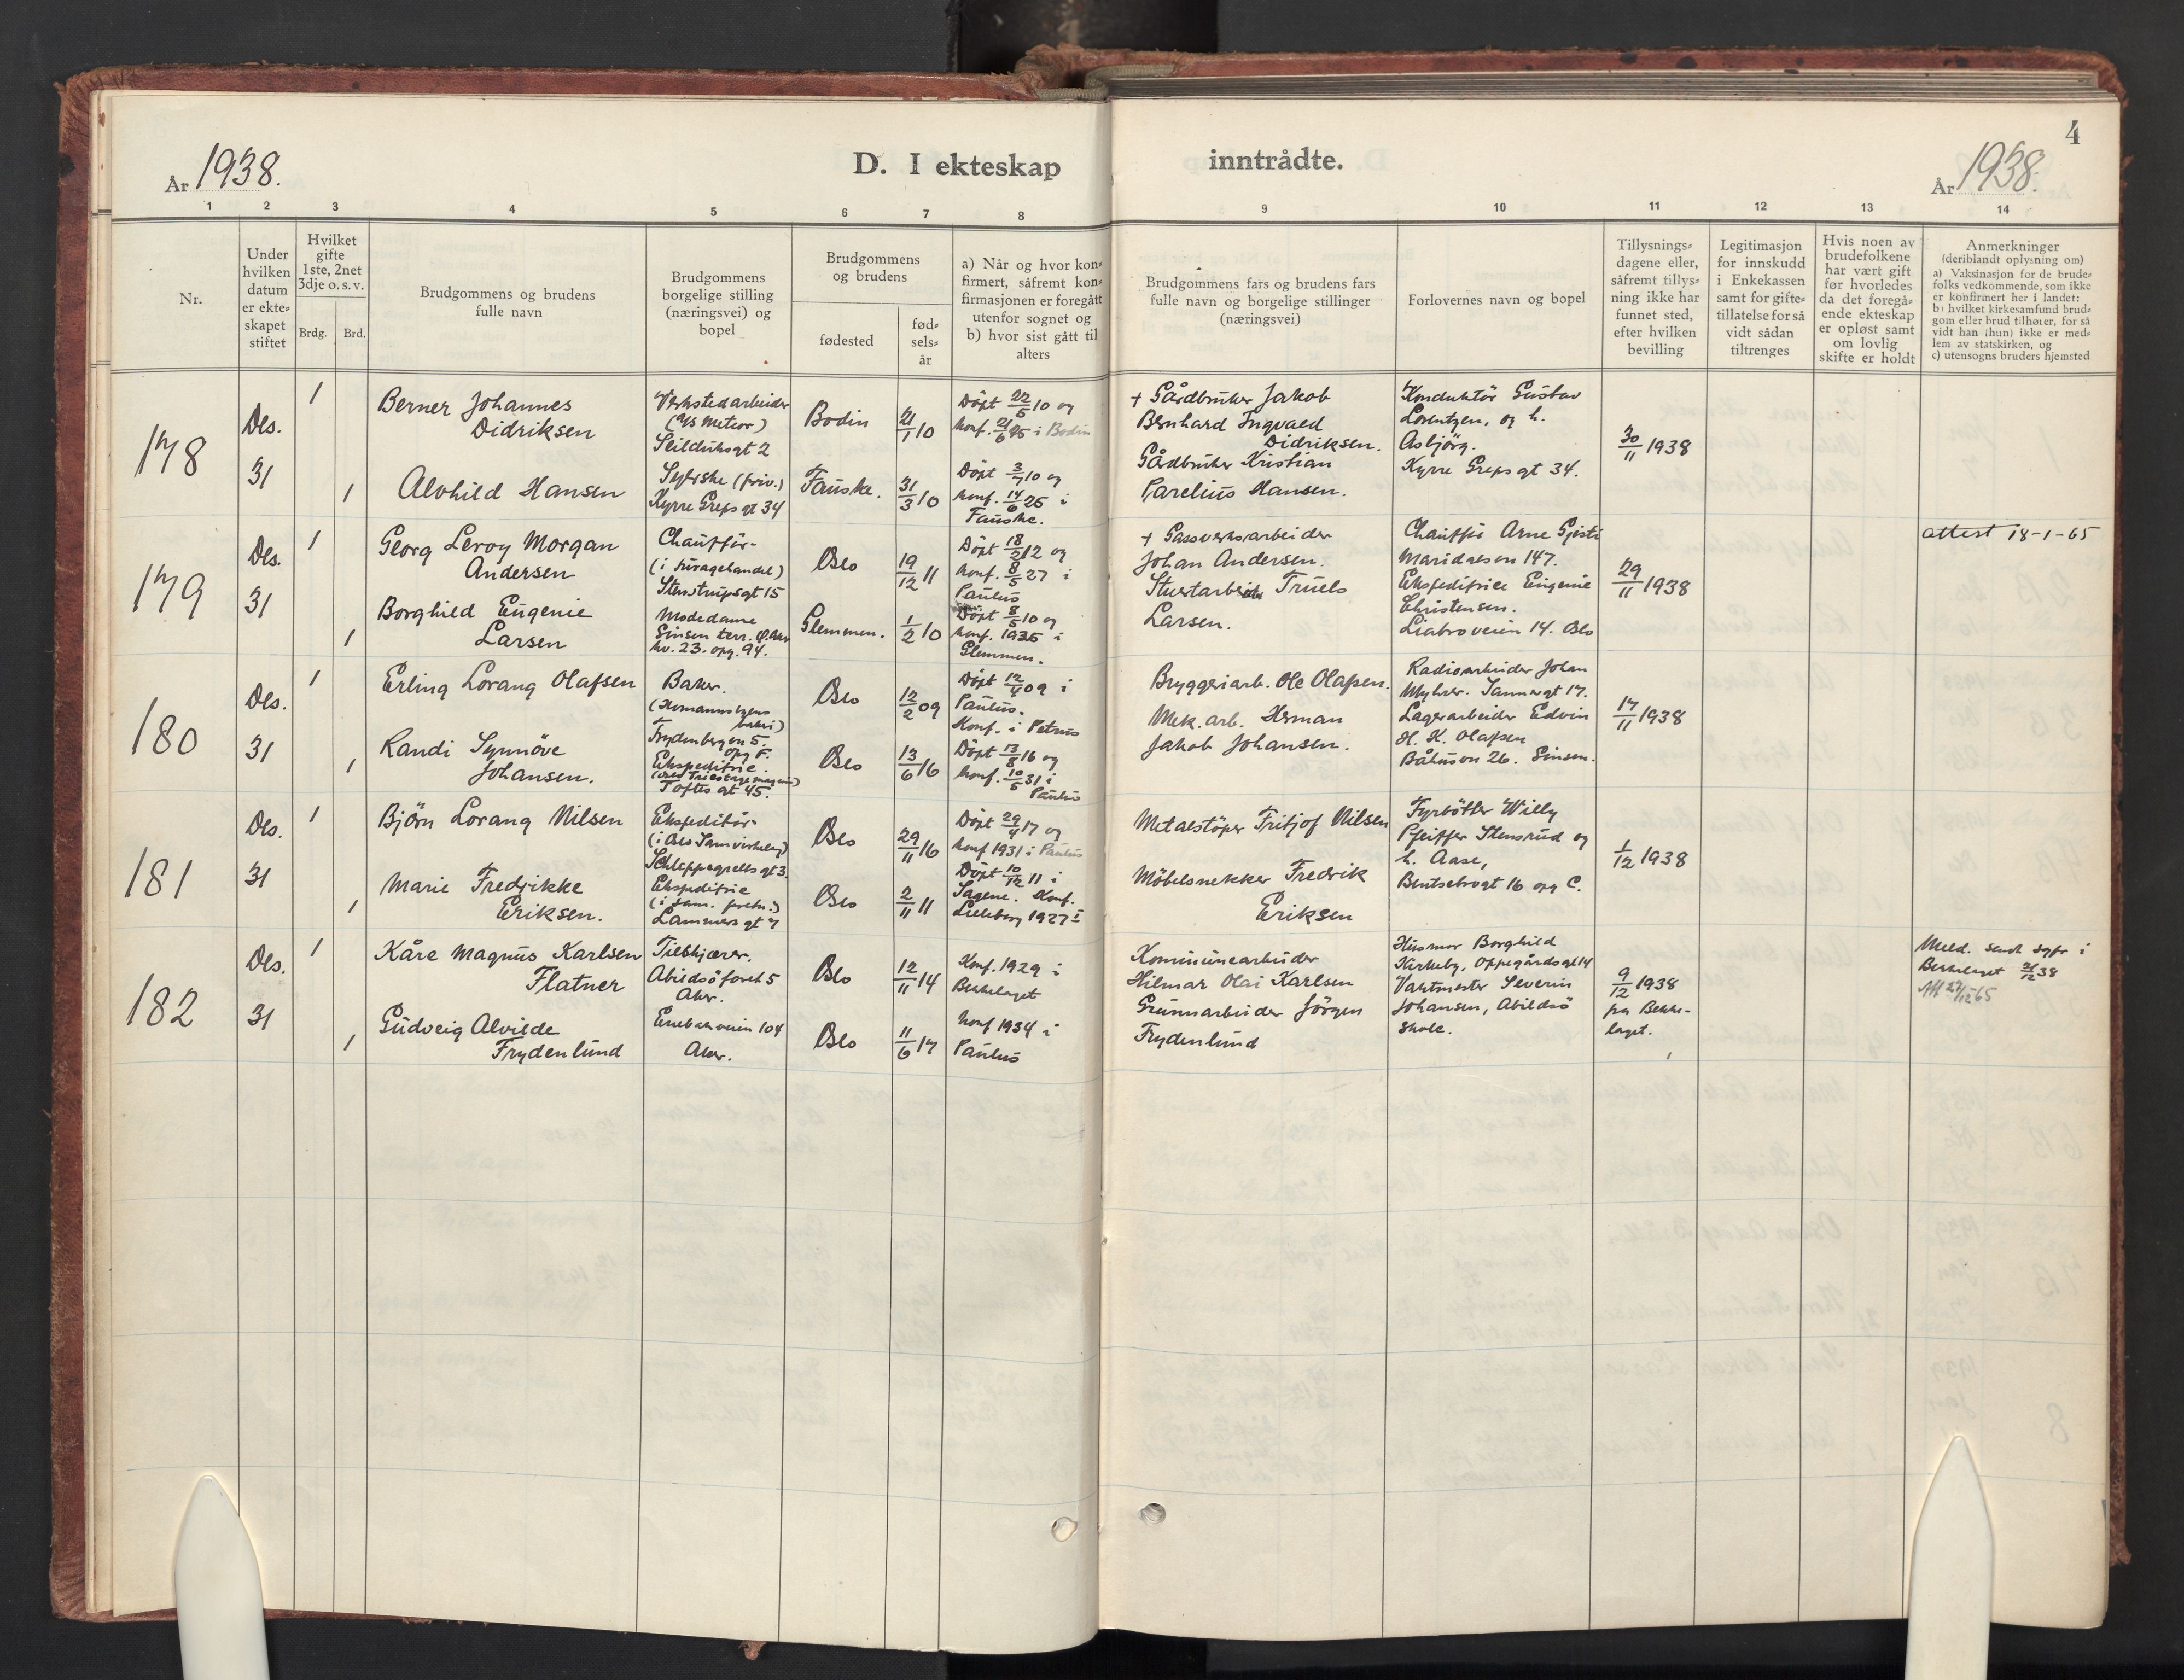 4
År 1938.
D. I ekteskap inntrådte.
År 1938.
1 2 3 4 5 6 7 8 9 10 11 12 13 14
Nr.
Under
hvilken
datum
er ekte=
skapet
stiftet
Hvilket
gifte
1ste, 2net
3dje o.s.v.
Brdg. Brd.
Brudgommens og brudens
fulle navn
Brudgommens
borgelige stilling
(næringsvei) og
bopel
Brudgommens
og brudens
fødested
fød=
sels=
år
a) Når og hvor kon=
firmert, såfremt kon=
firmasjonen er foregått
utenfor sognet og
b) hvor sist gått til
alters
Brudgommens fars og brudens fars
fulle navn og borgelige stillinger
(næringsvei)
Forlovernes navn og bopel
Tillysnings=
dagene eller,
såfremt tillys=
ning ikke har
funnet sted,
efter hvilken
bevilling
Legitimasjon
for innskudd
i Enkekassen
samt for gifte=
tillatelse for så
vidt sådan
tiltrenges
Hvis noen av
brudefolkene
har vært gift
før hvorledes
da det foregå=
ende ekteskap
er opløst samt
om lovlig
skifte er holdt
Anmerkninger
(deriblandt oplysning om)
a) Vaksinasjon for de brude=
folks vedkommende, som ikke
er konfirmert her i landet:
b) hvilket kirkesamfund brud=
gom eller brud tilhører, for så
vidt han (hun) ikke er med=
lem av statskirken, og
c) utensogns bruders hjemsted
178
Des.
31
1
1
Berner Johannes
Didriksen
Alvhild Hansen
Verkstedarbeider
(A/S Meteor)
Seilduksgt 2
Syerske (priv.)
Kyrre Greps gt 34
Bodin
Fauske.
21/1 10
31/3 10
Døpt 22/5 10 og
konf. 21/6 25 i Bodin
Døpt 3/7 10 og
konf. 14/6 25 i
Fauske.
+ Gårdbruker Jakob
Bernhard Ingvald
Didriksen.
Gårdbruker Kristian
Parelius Hansen.
Konduktör Gustav
Lorentzen, og h.
Asbjörg.
Kyrre Greps gt 34.
30/11 1938
179
Des.
31
1
1
Georg Leroy Morgan
Andersen
Borghild Eugenie
Larsen
Chaufför
(i furagehandel)
Stenstrupsgt 15
Modedame
Sinsen terr.
kv. 23. opg. 94.
Oslo
Glemmen.
19/12 11
1/2 10
Døpt 18/2 12 og
konf. 8/5 27 i
Paulus
Døpt 8/5 10 og
konf. 1925 i
Glemmen.
+ Gassverksarbeider
Johan Andersen.
Stuertarbeider Truels
Larsen.
Chaufför Arne Gjesti
Maridalsvn 147.
Ekspeditrice Eugenie
Christensen.
Liabroveien 14. Oslo
29/11 1938
attest 18-1-65
180
Des.
31
1
1
Erling Lorang Olafsen
Randi Synnöve
Johansen.
Baker.
(Homannsbyens
bakeri)
Frydenbergvn 5.
opg F.
Ekspeditrise.
Toftes gt 45.
Oslo
Oslo
12/2 09
13/6 16
Døpt 12/4 09 i
Paulus.
Konf. i Petrus
Døpt 13/8 16 og
konf. 10/5 31 i
Paulus
Bryggeriarb. Ole Olafsen.
Mek. arb. Herman
Jakob Johansen.
Radioarbeider Johan
Myhrer. Sannergt 17.
Lagerarbeider Edvin
H. K. Olafsen
Båhusvn 26. Sinsen.
17/11 1938
181
Des.
31
1
1
Björn Lorang Nilsen
Marie Fredrikke
Eriksen.
Ekspeditör
(i Oslo Samvirkelag)
Schleppegrells gt 3.
Ekspeditrise
(i sam. foretn.)
Lammers gt 7
Oslo
Oslo
29/11 16
2/11 11
Døpt 29/4 17 og
konf 1931 i Paulus
Døpt 10/12 11 i
Sagene. Konf.
Lilleborg 1927
Metalstöper Fritjof Nilsen
Möbelsnekker Fredrik
Eriksen
Fyrböter Willy
Pfeiffer Stensrud og
h. Aase,
Bentsebrogt 16 opg C.
1/12 1938
182
Des.
31
1
1
Kåre Magnus Karlsen
Flatner
Gudveig Alvilde
Frydenlund
Tilskjærer.
Abildsöfaret 5
Aker.
Enebakveien 104
Aker.
Oslo
Oslo
12/11 14
11/6 17
Konf. 1929 i
Bekkelaget
Konf 1934 i
Paulus
Kommunearbeider
Hilmar Olai Karlsen
Grunnarbeider Jörgen
Frydenlund
Husmor Borghild
Kirkeby, Oppegårdsgt 14
Vaktmester Severin
Johansen, Abildsö
skole.
9/12 1938
fra Bekke-
laget.
Meld. sendt sgpr i
Bekkelaget 31/12 38
Att 27/12 65